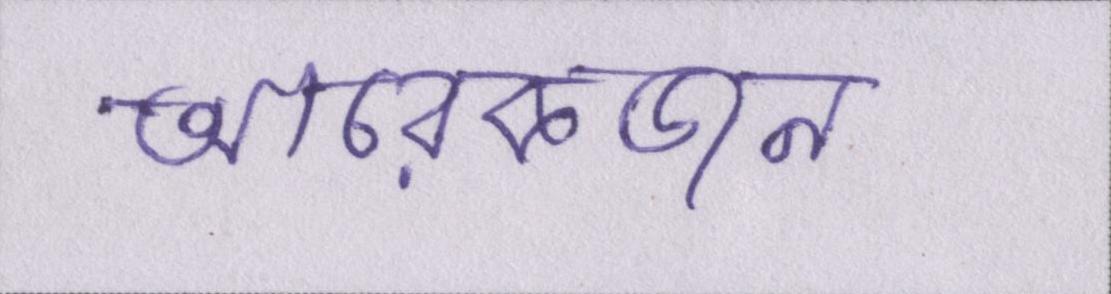 আরেকজন